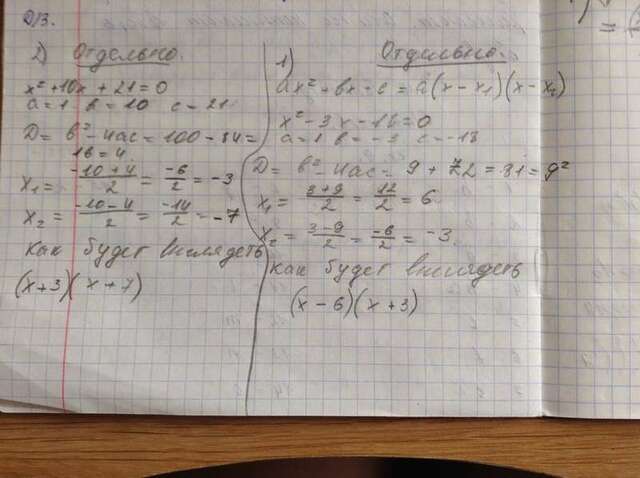 Д/З.
2) Отдельно.
x² + 10x + 21 = 0
a = 1 b = 10 c = 21
D = b² - 4ac = 100 - 84 =
16 = 4
x₁ = -10+4/2 = -6/2 = -3
x₂ = -10-4/2 = -14/2 = -7
Как будет выглядеть
(x+3)(x+7)
1) Отдельно.
ax² + bx - c = a(x - x₁)(x - x₂)
x² - 3x - 18 = 0
a = 1 b = -3 c = -18
D = b² - 4ac = 9 + 72 = 81 = 9²
x₁ = 3+9/2 = 12/2 = 6
x₂ = 3-9/2 = -6/2 = -3
Как будет выглядеть
(x - 6)(x + 3)